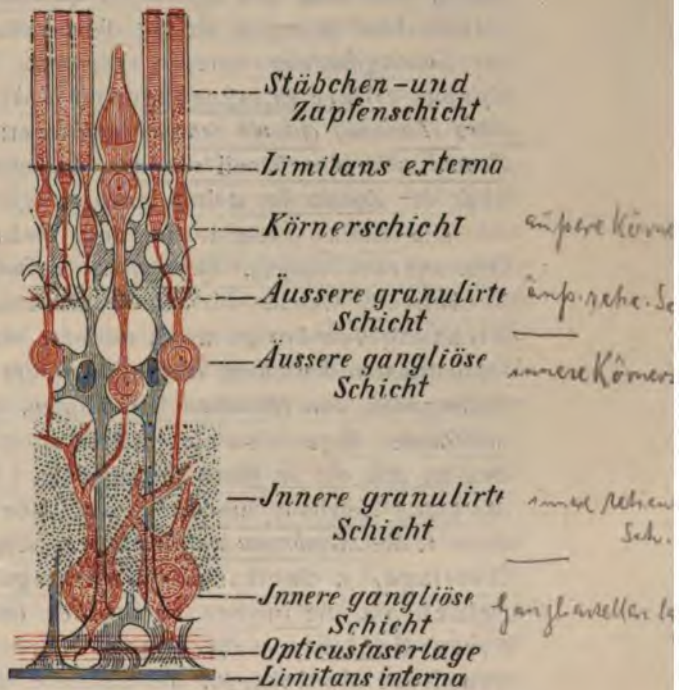 Stäbchen-und
Zapfenschicht
Limitans externa
Körnerschicht
äußere Körne
Äussere granulirte
Schicht
Äussere gangliöse
Schicht
innere Körners
Innere granulirte
Schicht
innere
Sch.
Innere gangliöse
Schicht
Opticusfaserlage
Limitans interna